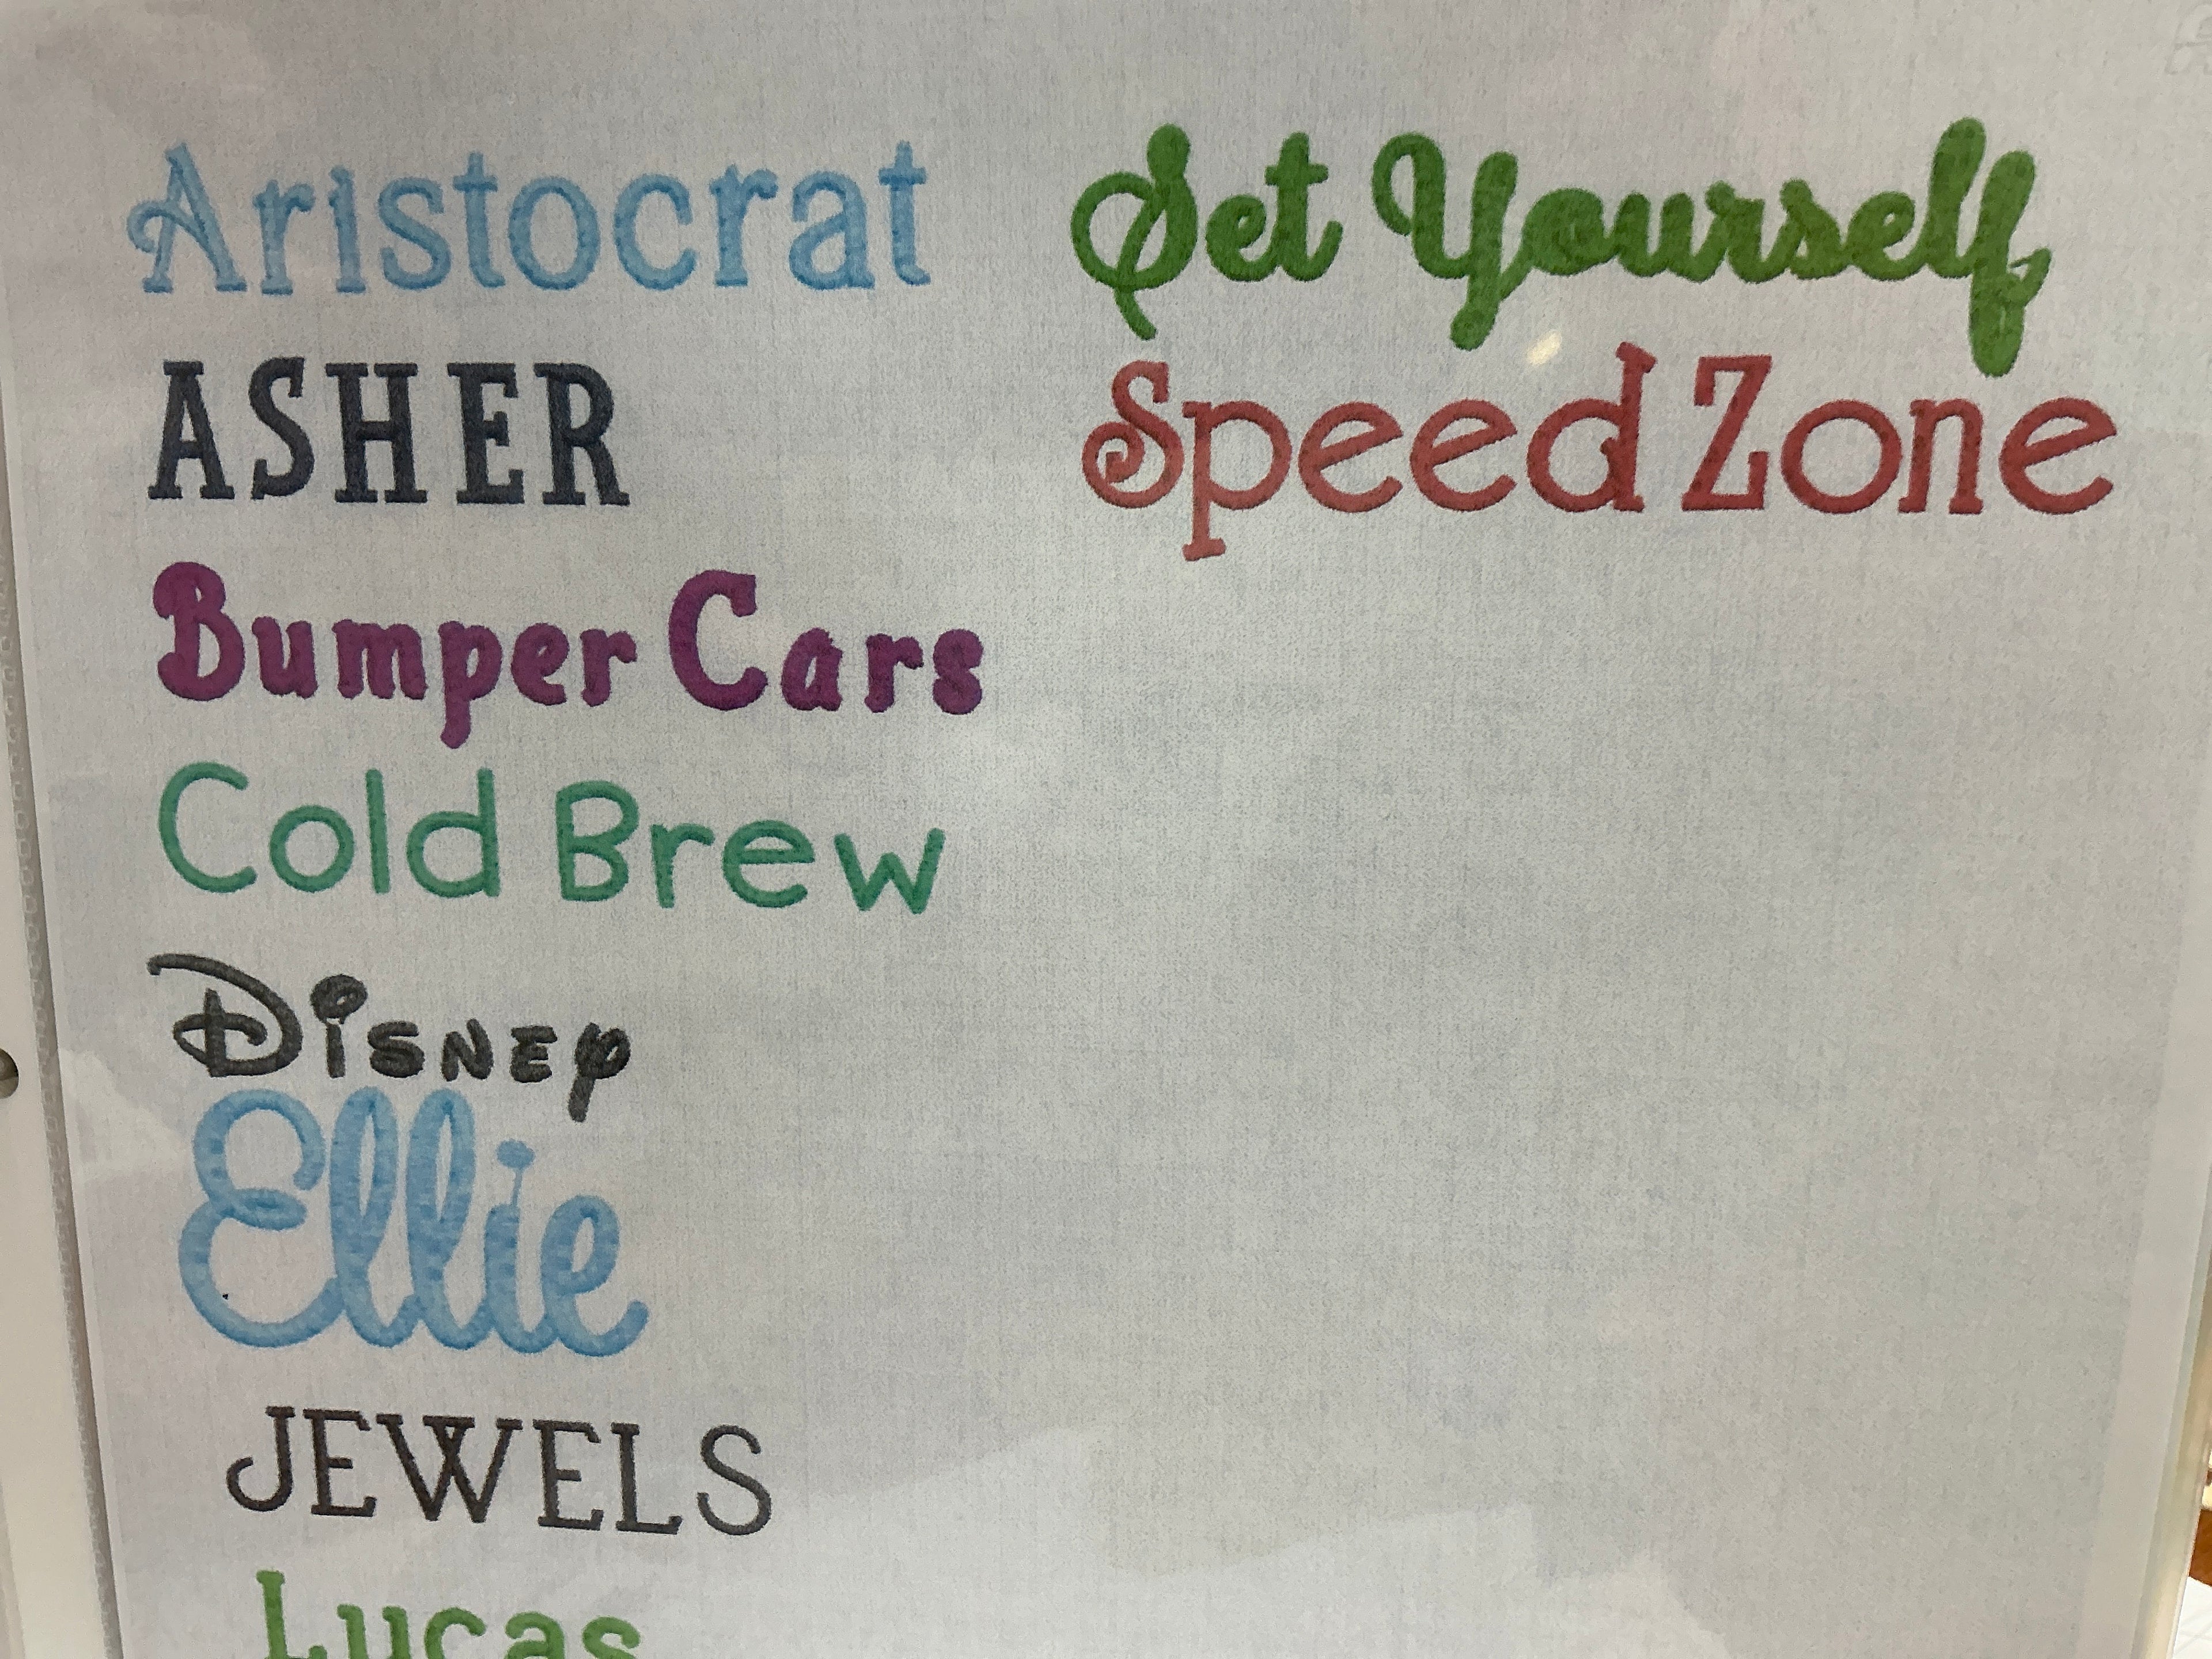 Aristocrat
ASHER
Bumper Cars
Cold Brew
Disney
Ellie
JEWELS
Lucas
Set Yourself
Speed Zone